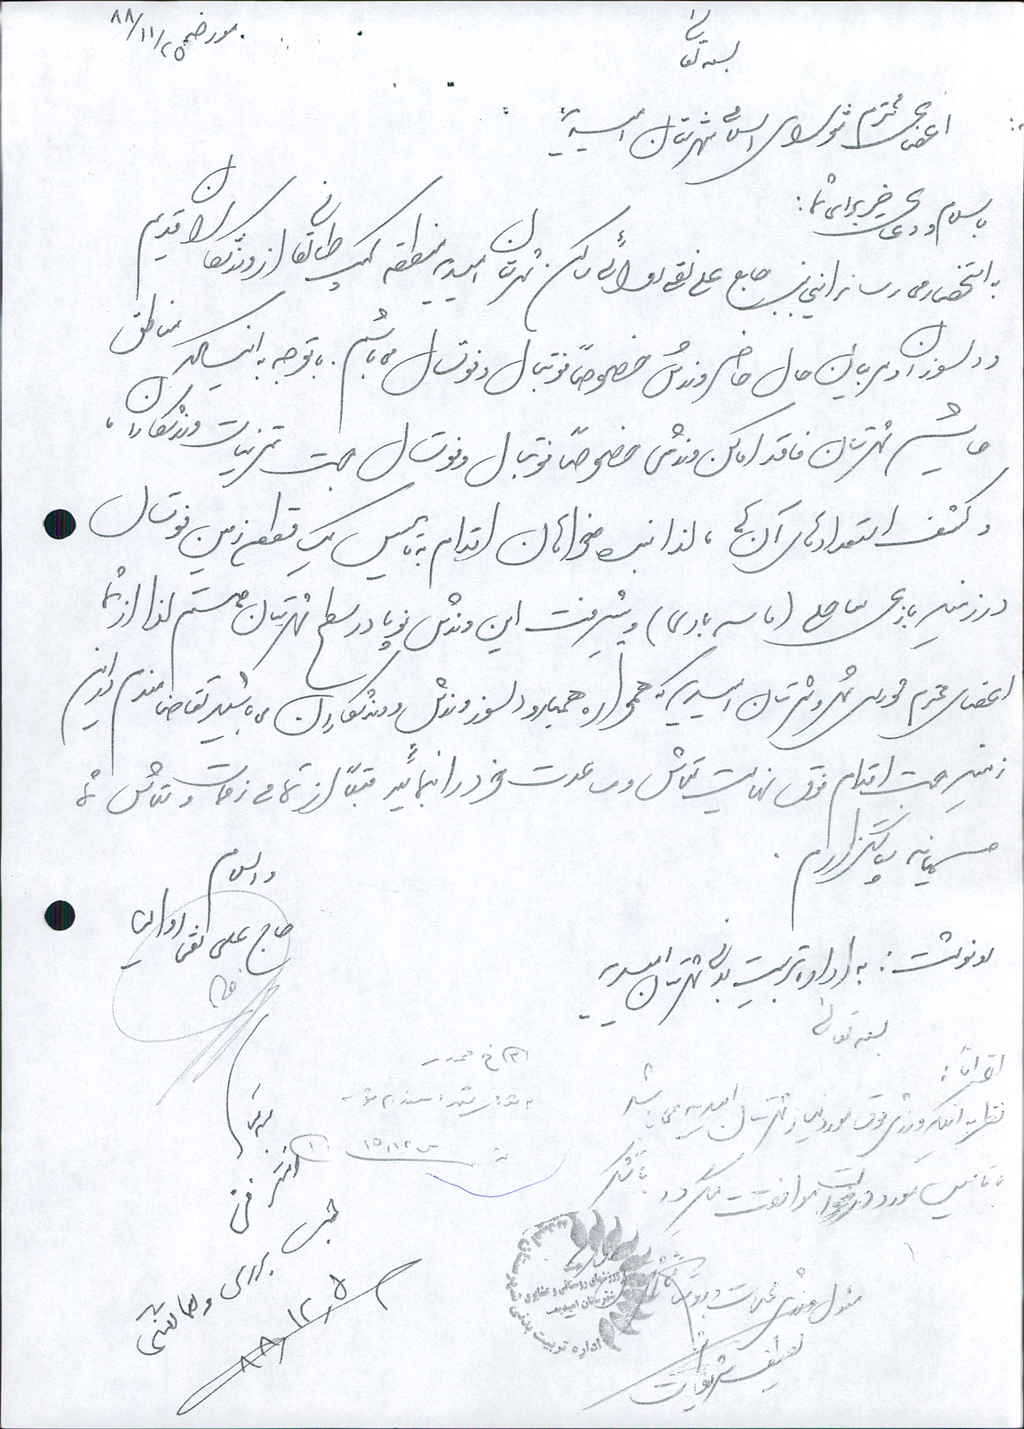 بسمه تعالی
مورخه ۸۸/۱۱/۲۵
اعضای محترم شورای اسلامی شهرستان امیدیه
با سلام و دعای خیر برای شما:
به استحضار می رساند اینجانب حاج علی نقی ساکن شهرستان امیدیه منطقه کمپ از ورزشکاران قدیم
و دلسوزان و مربیان حال حاضر ورزش خصوصاً فوتبال و فوتسال می باشم. با توجه به اینکه مناطق
حاشیه شهرستان فاقد اماکن ورزشی خصوصاً فوتبال و فوتسال جهت تمرینات ورزشکاران،
و کشف استعدادهای آن ها، لذا اینجانب خواهان اقدام به تاسیس یک قطعه زمین فوتسال
در زمینه بازی ساحلی (ماسه بازی) و پیشرفت این ورزش نوپا در سطح شهرستان هستم لذا از شما
اعضای محترم شورای شهر شهرستان امیدیه که همواره همیار و دلسوز ورزش و ورزشکاران می باشید تقاضامندم در این
زمینه جهت اقدام فوق نهایت تلاش و مساعدت خود را بنمائید قبلاً از تمامی زحمات و تلاش شما
صمیمانه سپاسگزارم.
والسلام
حاج علی نقی
رونوشت: به اداره تربیت بدنی شهرستان امیدیه
بسمه تعالی
احتراماً:
نظر به اینکه ورزش فوق مورد نیاز شهرستان امیدیه می باشد
با تاسیس مورد درخواست موافقت میگردد با تشکر
مسئول ورزش
اداره تربیت بدنی شهرستان امیدیه
ورزشهای روستایی و عشایری
خوزستان امیدیه
جهت بررسی و
۸۸/۱۲/۵